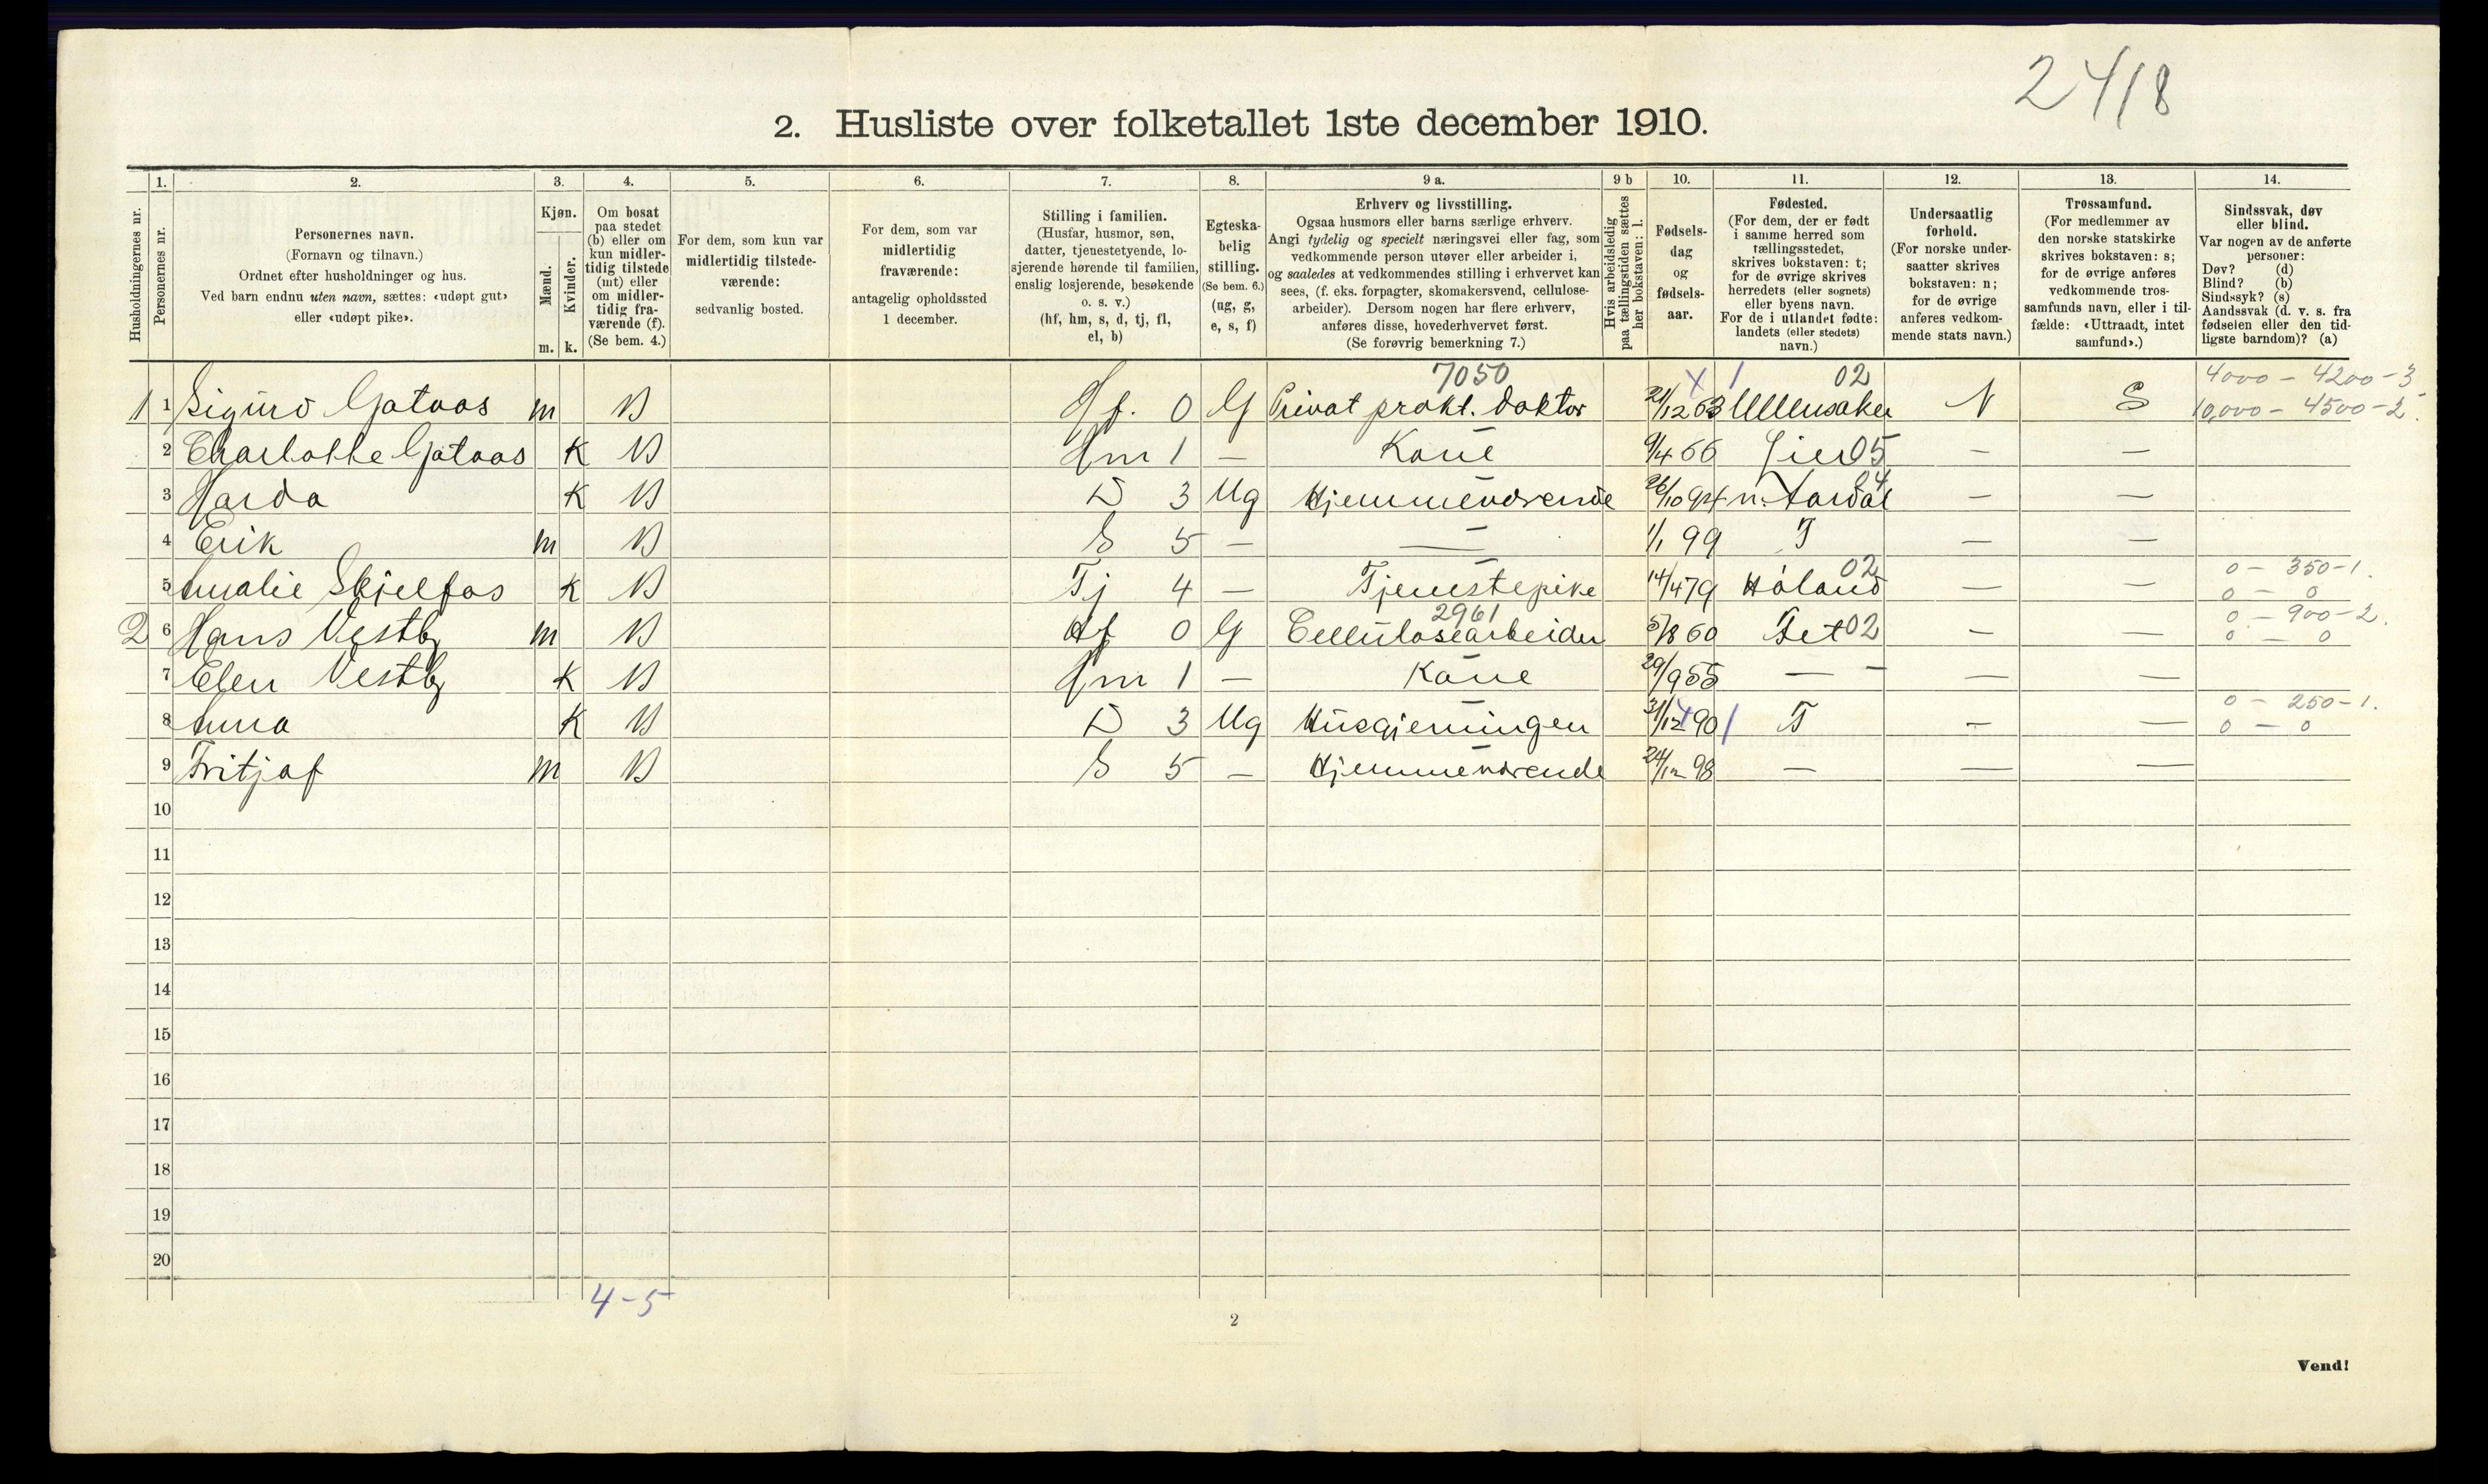 24/8
2. Husliste over folketallet 1ste december 1910.
Husholdningernes nr.
1. Personernes nr.
2. Personernes navn.
(Fornavn og tilnavn.)
Ordnet efter husholdninger og hus.
Ved barn endnu uten navn, sættes: «udøpt gut»
eller «udøpt pike».
3. Kjøn.
Mænd. Kvinder.
m. k.
4. Om bosat
paa stedet
(b) eller om
kun midler-
tidig tilstede
(mt) eller
om midler-
tidig fra-
værende (f).
(Se bem. 4.)
5. For dem, som kun var
midlertidig tilstede-
værende:
sedvanlig bosted.
6. For dem, som var
midlertidig
fraværende:
antagelig opholdssted
1 december.
7. Stilling i familien.
(Husfar, husmor, søn,
datter, tjenestetyende, lo-
sjerende hørende til familien,
enslig losjerende, besøkende
o. s. v.)
(hf, hm, s, d, tj, fl,
el, b)
8. Egteska-
belig
stilling.
(Se bem. 6.)
(ug, g,
e, s, f)
9 a. Erhverv og livsstilling.
Ogsaa husmors eller barns særlige erhverv.
Angi tydelig og specielt næringsvei eller fag, som
vedkommende person utøver eller arbeider i,
og saaledes at vedkommendes stilling i erhvervet kan
sees, (f. eks. forpagter, skomakersvend, cellulose-
arbeider). Dersom nogen har flere erhverv,
anføres disse, hovederhvervet først.
(Se forøvrig bemerkning 7.)
9 b Hvis arbeidsledig
paa tællingstiden sættes
her bokstaven: l.
10. Fødsels-
dag
og
fødsels-
aar.
11. Fødested.
(For dem, der er født
i samme herred som
tællingsstedet,
skrives bokstaven: t;
for de øvrige skrives
herredets (eller sognets)
eller byens navn.
For de i utlandet fødte:
landets (eller stedets)
navn.)
12. Undersaatlig
forhold.
(For norske under-
saatter skrives
bokstaven: n;
for de øvrige
anføres vedkom-
mende stats navn.)
13. Trossamfund.
(For medlemmer av
den norske statskirke
skrives bokstaven: s;
for de øvrige anføres
vedkommende tros-
samfunds navn, eller i til-
fælde: «Uttraadt, intet
samfund».)
14. Sindssvak, døv
eller blind.
Var nogen av de anførte
personer:
Døv? (d)
Blind? (b)
Sindssyk? (s)
Aandssvak (d. v. s. fra
fødselen eller den tid-
ligste barndom)? (a)
7050 X / 02 4000 - 4200 - 3
1 1 Sigurd Gataas m B Hf. 0 G Privat prakt. Doktor 21/12 63 Ullensaker N S 10,000 - 4500 - 2
2 Charlotte Gataas K B Hm 1 — Kone 9/4 66 Lier 05 — —
3 Harda K B D 3 Ug Hjemmeværende 26/10 94 n. Aardal 04 — —
4 Erik m B S 5 — — 1/1 99 T — —
02 0 - 350 - 1.
5 Amalie Skjelfos K B Tj 4 — Tjenestepike 14/4 79 Høland — — 0 - 0
2961 0 - 900 - 2.
2 6 Hans Vestby m B Hf 0 G Cellulosearbeider 5/8 60 Fet 02 — — 0 - 0
7 Elen Vestby K B Hm 1 — Kone 29/9 55 — — —
0 - 250 - 1.
8 Anna K B D 3 Ug Husgjerningen 31/12 90 / T — — 0 - 0
9 Fritjof m B S 5 — Hjemmeværende 24/12 98 — — —
10
11
12
13
14
15
16
17
18
19
20
4-5
2
Vend!